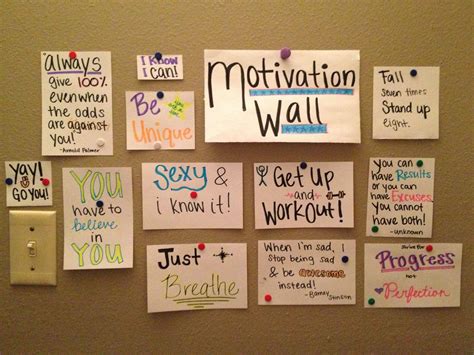 Always
give 100%
even when
the odds
are against
you!
-Arnold Palmer
I Know
I can!
Be
Unique
Motivation
Wall
Fall
Seven times
Stand up
eight.
yay!
Go you!
YOU
have to
believe
in
YOU
Sexy &
i know it!
Get Up
and
Workout!
You can
have Results
or you can
have Excuses.
You cannot
have both!
-unknown
Just
Breathe
When i'm sad, I
stop being sad
& be awesome
instead!
-Barney
Stinson
Strive for
Progress
not
Perfection